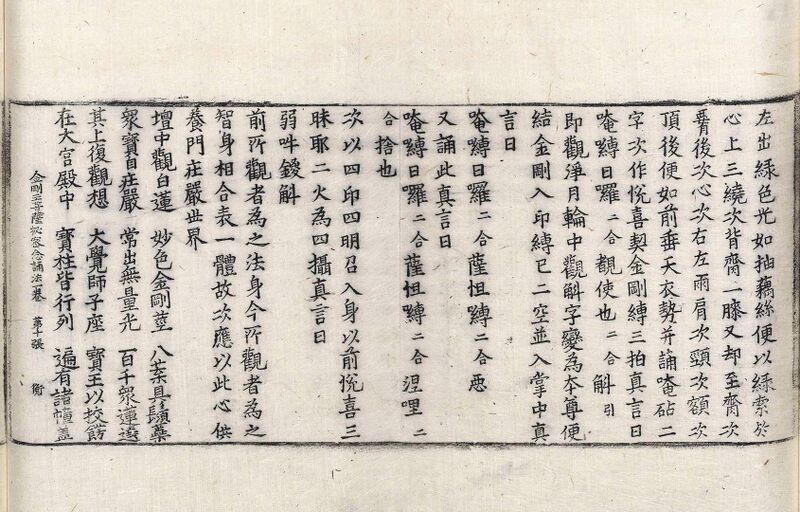 左出綠色光如抽藕絲便以綠索於
心上三繞次背齊二膝又却至齊次
霄後次心次右左兩肩次頸次額次
頂後便如前垂天衣勢并誦唵砧二
字次作悅喜契金剛縛三拍真言曰
唵縛日囉二合覩使也二合斛引
即觀淨月輪中觀斛字變為本尊便
結金剛入印縛已二空並入掌中真
言曰
唵縛日囉二合薩怛縛二合惡
又誦此真言曰
唵縛日囉二合薩怛縛二合涅哩二
合捨也
次以四印四明召入身以前悅喜三
昧耶二火為四攝真言曰
弱吽鑁斛
前所觀者為之法身今所觀者為之
智身相合表一體故次應以此心供
養門莊嚴世界
壇中觀白蓮 妙色金剛莖 八葉具鬚蘂
眾寶自莊嚴 常出無量光 百千眾蓮遶
其上復觀想 大覺師子座 寶王以挍飾
在大宮殿中 寶柱皆行列 遍有諸幢蓋
金剛王菩薩祕密念誦法一卷 第十張 衡